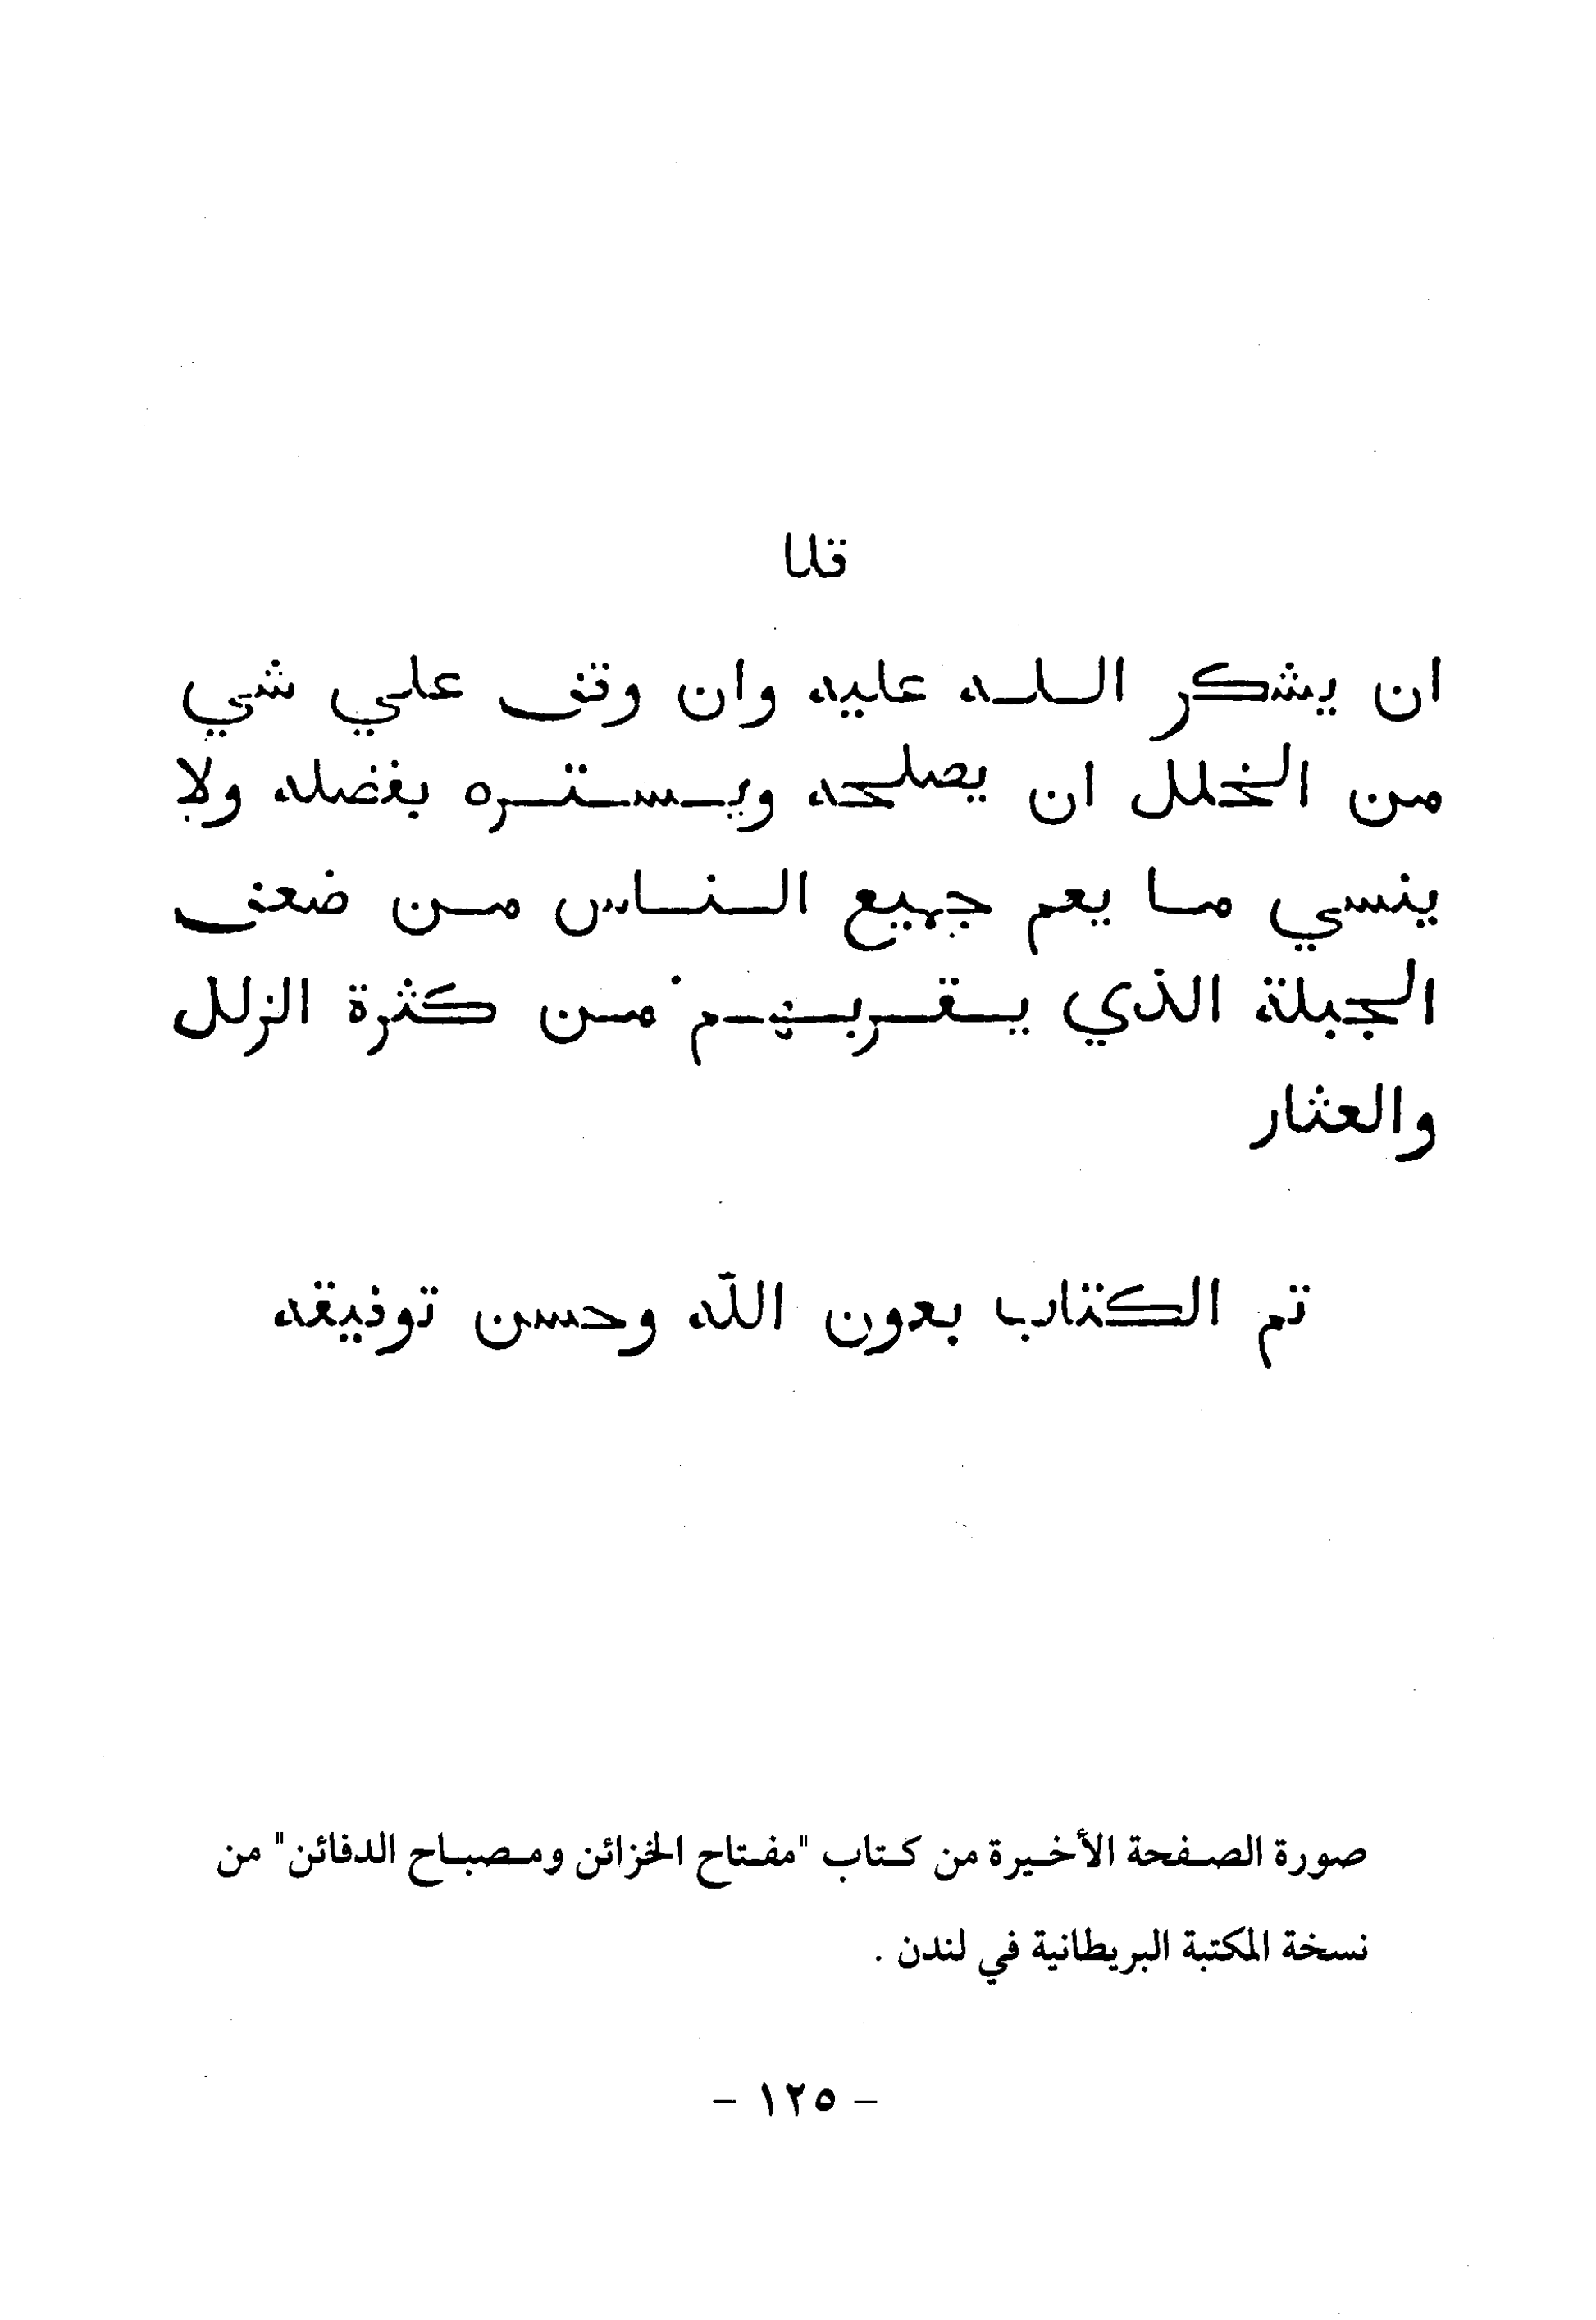 قلنا
ان يشكر الله عليه وان وقف علي شي
من الخلل ان يصلحه ويستره بفضله ولا
ينسي ما يعم جميع الناس من ضعف
الجبلة الذي يقربهم من كثرة الزلل
والعثار
تم الكتاب بعون الله وحسن توفيقه
صورة الصفحة الأخيرة من كتاب "مفتاح الخزائن ومصباح الدفائن" من
نسخة المكتبة البريطانية في لندن .
- ١٢٥ -